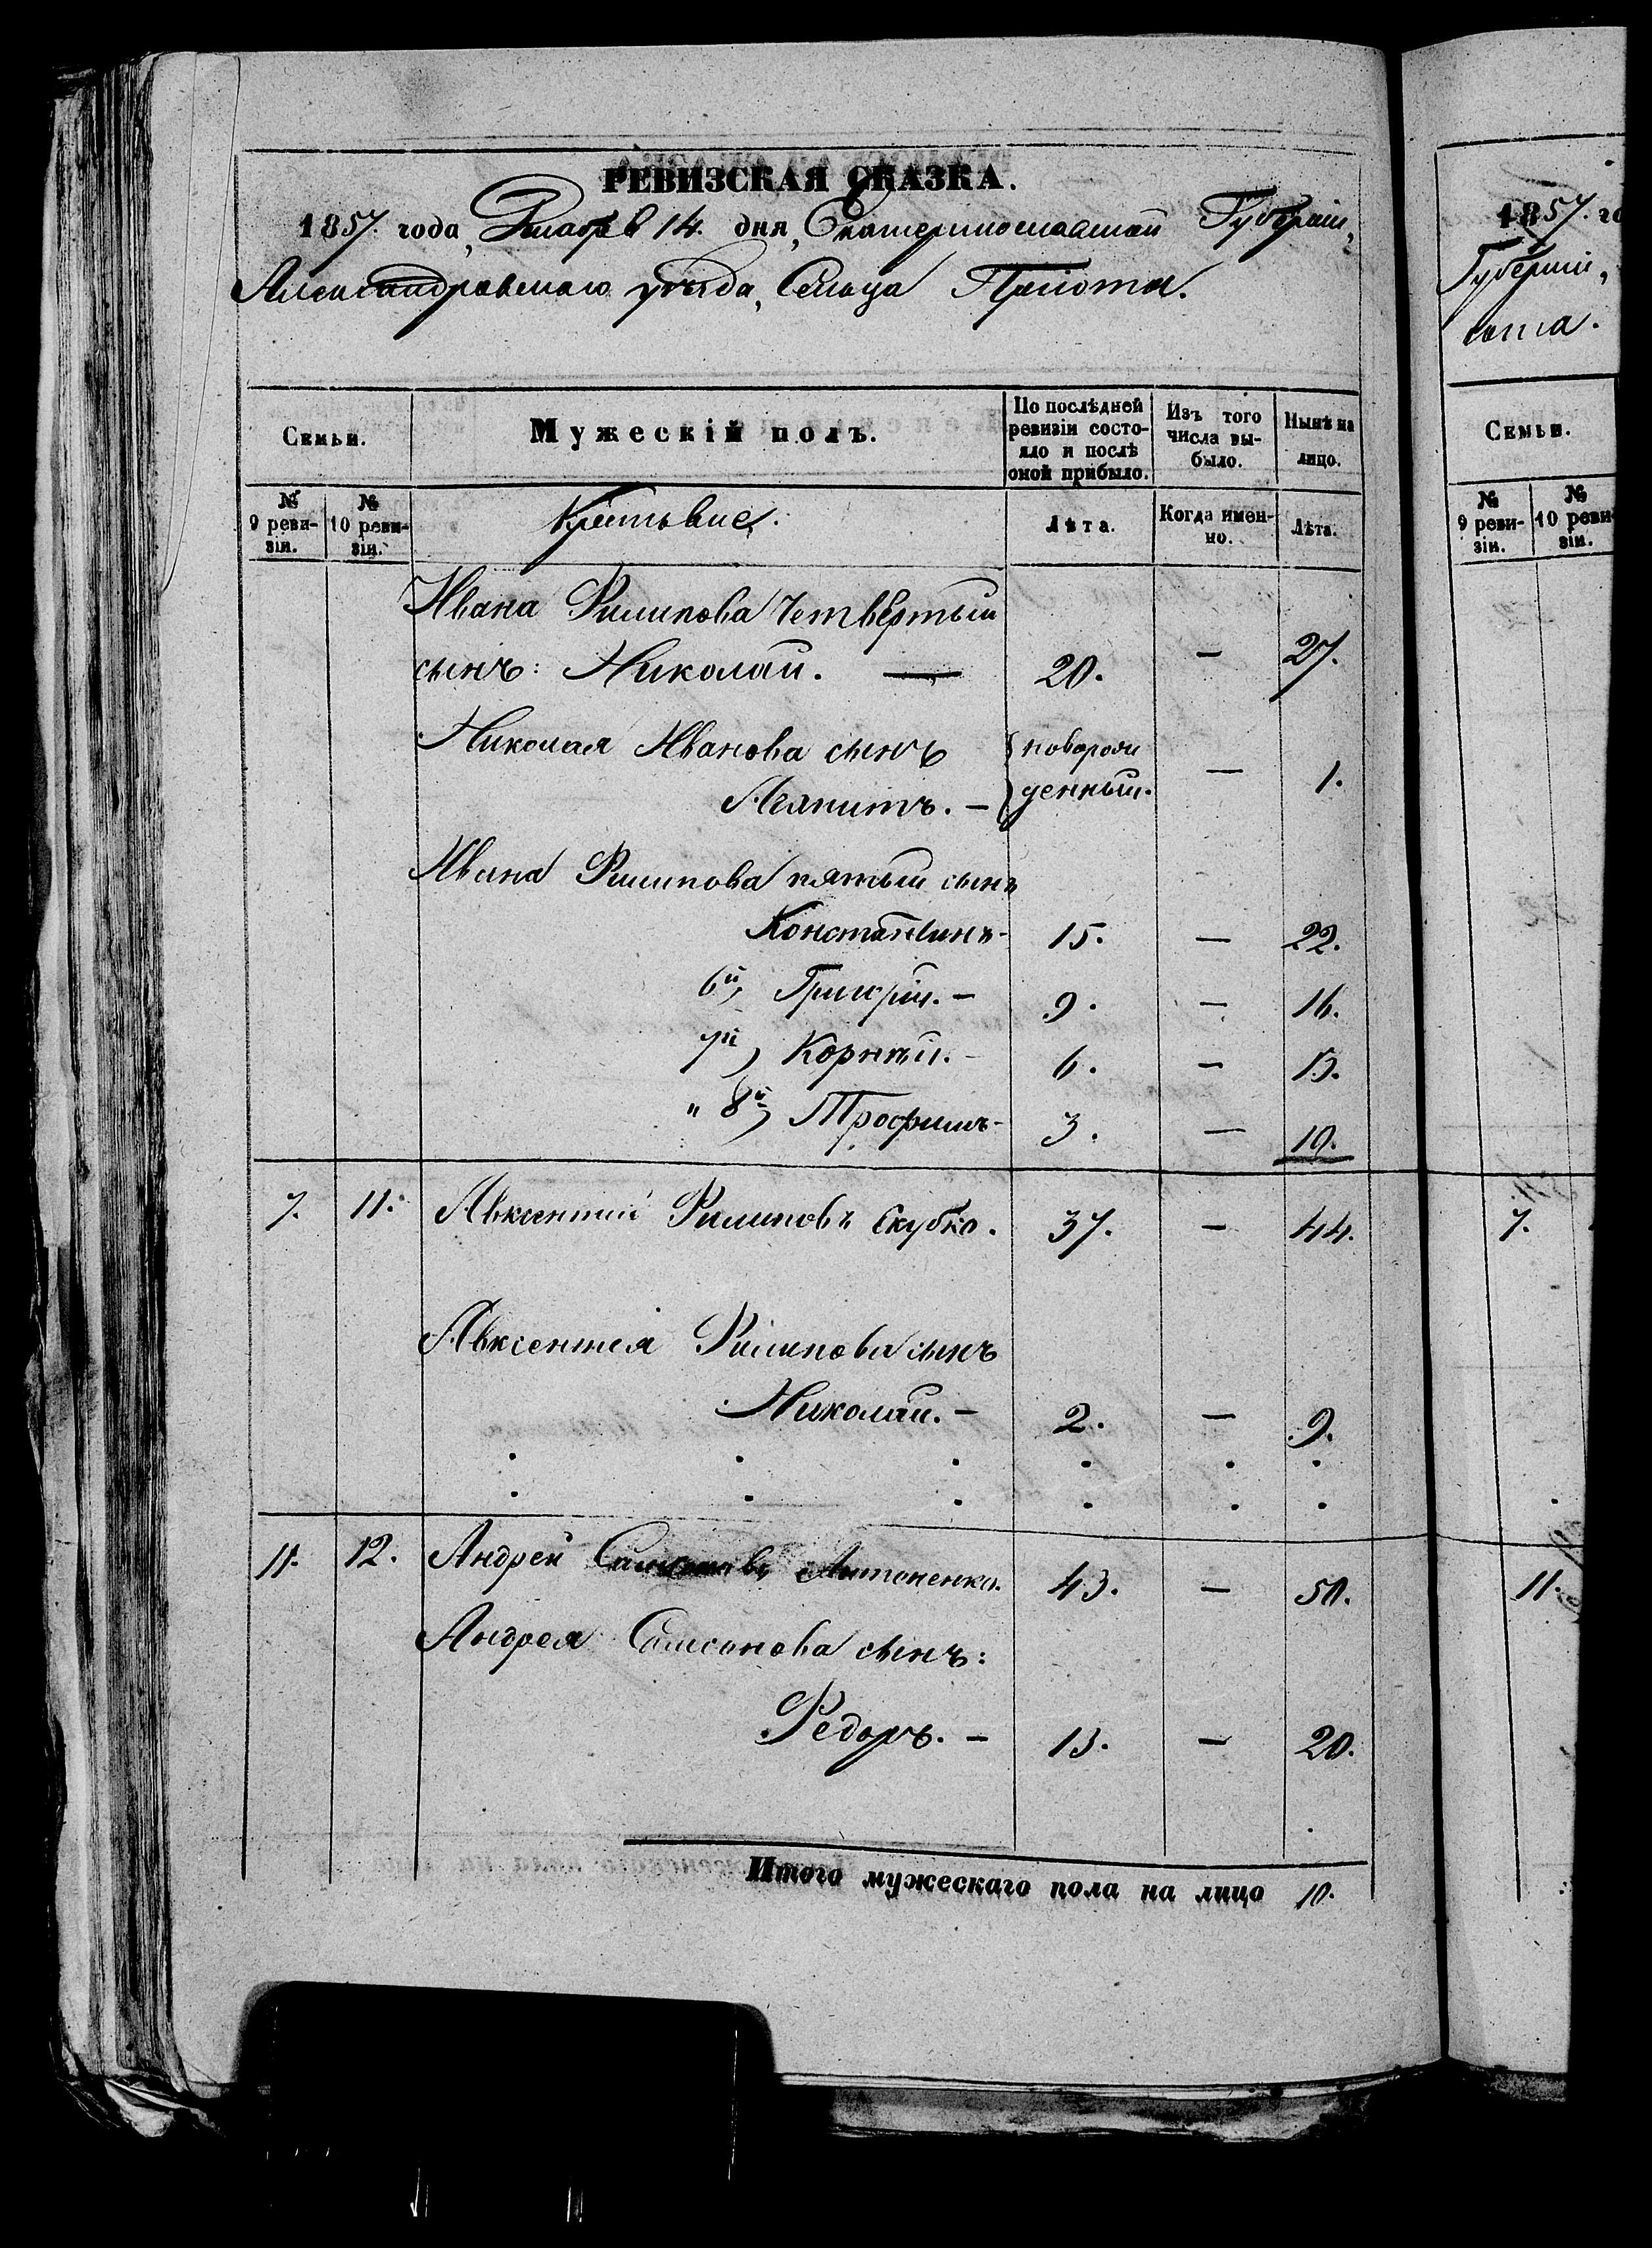 РЕВИЗСКАЯ СКАЗКА.
1857. года, 14. дня, Екатеринославской Губерніи,
Александровскаго уѣзда, Сельца
Семьи.
Мужескій полъ.
По послѣдней ревизіи состояло и послѣ оной прибыло.
Изъ того числа выбыло.
Нынѣ на лицо.
№ 9 ревизіи.
№ 10 ревизіи.
Лѣта.
Когда именно.
Лѣта.
Ивана Филипова четвертый
сынъ: Николай. — 20. — 27.
Николая Иванова сынъ новорож
денный. — 1.
Ивана Филипова пятый сынъ
Константинъ - 15. — 22.
6й, Григорій. - 9. — 16.
7й, Корнѣй. - 6. — 13.
" 8й, Трофимъ - 3. — 10.
7. 11. Авксентій Филиповъ Скубко. 37. — 44.
Авксентія Филипова сынъ
Николай. - 2. — 9.
11. 12. Андрей Самсоновъ Антоненко. 43. — 50.
Андрея Самсонова сынъ:
Федоръ. - 13. — 20.
Итого мужескаго пола на лицо 10.
1857. го
Губерніи,
Семьи.
№ 9 ревизіи.
№ 10 реви
зіи.
7.
11.